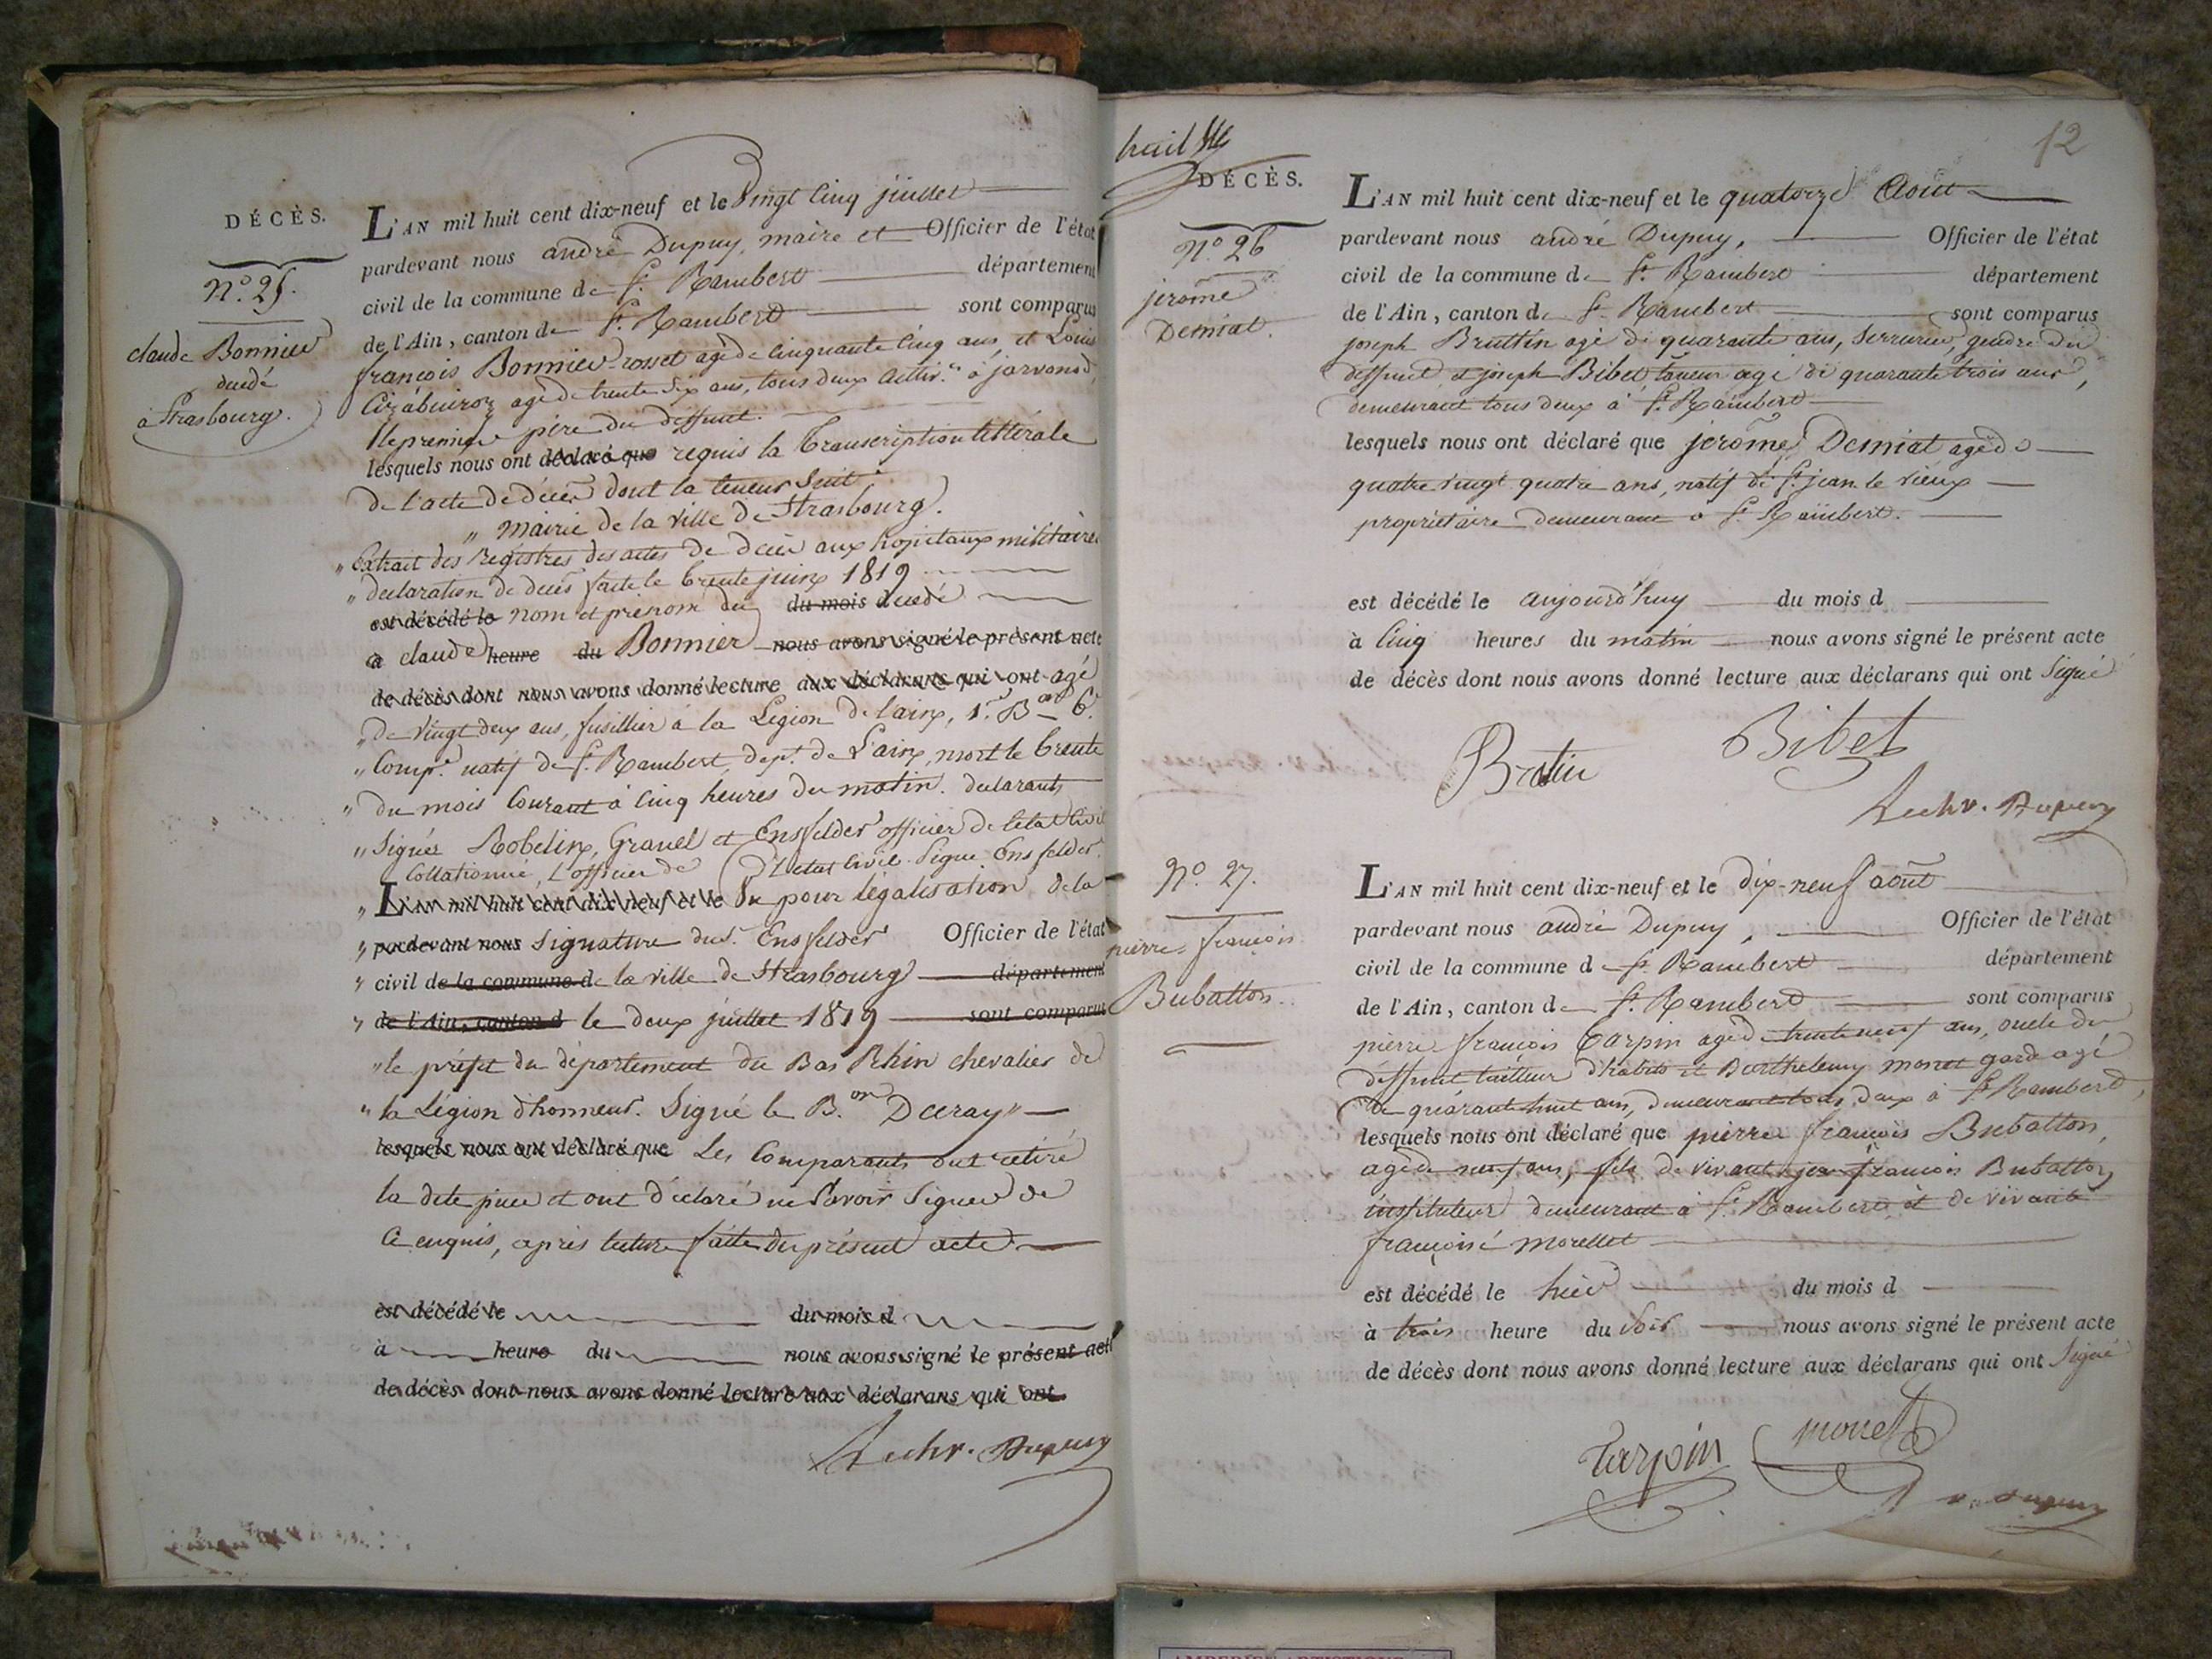 DÉCÈS.
N.° 25.
claude Bonnier
decedé
à Strasbourg.
L'AN mil huit cent dix-neuf et le Vingt Cinq juillet
pardevant nous andré Dupuy, maire et Officier de l'état
civil de la commune de S.t Rambert département
de l'Ain, canton de S.t Rambert sont comparus
françois Bonnier-rosset agé de Cinquante Cinq ans, et Louis
agé de trente Six ans, tous deux Cultiv.rs à javornod,
le premier père du deffunt.
lesquels nous ont déclaré que requis la Transcription littérale
de l'acte de décès dont la teneur Suit
" Mairie de la ville de Strasbourg.
" Extrait des Registres des actes de décès aux hopitaux militaires
" declaration de decès faite le trente juin 1819
est décédé le nom et prenom du du mois decedé
à claude heure du Bonnier nous avons signé le présent acte
de décès dont nous avons donné lecture aux déclarans qui ont agé
" de vingt deux ans, fusillier à la Légion de l'ain, 1.er B.on 6.e
" Comp.e natif de S.t Rambert, dep.t de L'ain, mort le trente
" du mois Courant à Cinq heures du matin. declarants
" Signés Robelin, Gravel et Ensfelder officier de l'etat Civil
Collationné, L'officier de L'etat Civil Signé Ensfelder.
" L'AN mil huit cent dix-neuf et le Vu pour légalisation de la
" pardevant nous Signature du S.r Ensfelder Officier de l'état
" civil de la commune de la ville de Strasbourg département
" de l'Ain, canton d le deux juillet 1819 sont comparus
" le préfet du département du Bas Rhin chevalier de
" la Légion d'honneur. Signé le B.on Decray "
lesquels nous ont déclaré que Les Comparants ont retiré
la dite piece et ont déclaré ne Savoir Signer de
Ce enquis, après lecture faitte du présent acte
est décédé le du mois d
à heure du nous avons signé le présent acte
de décès dont nous avons donné lecture aux déclarans qui ont
Dupuy
12
DÉCÈS.
N.° 26
jerome
Demiat.
L'AN mil huit cent dix-neuf et le quatorze Aout
pardevant nous andré Dupuy, Officier de l'état
civil de la commune de S.t Rambert département
de l'Ain, canton de S.t Rambert sont comparus
joseph Bruttin agé de quarante ans, Serrurier, gendre du
deffunt, et joseph Bibet taneur agé de quarante trois ans,
demeurant tous deux à S.t Rambert
lesquels nous ont déclaré que jerome Demiat agé de
quatre vingt quatre ans, natif de S.t jean le vieux
propriétaire demeurant à S.t Rambert.
est décédé le aujourd'huy du mois d
à Cinq heures du matin nous avons signé le présent acte
de décès dont nous avons donné lecture aux déclarans qui ont Signé
Brutin
Bibet
Dupuy
N.° 27.
pierre-françois
Bubatton.
L'AN mil huit cent dix-neuf et le dix-neuf août
pardevant nous andré Dupuy, Officier de l'état
civil de la commune d S.t Rambert département
de l'Ain, canton de S.t Rambert sont comparus
pierre françois Tarpin agé de trente neuf ans, oncle du
deffunt tailleur d'habits et Barthelemy monet garde agé
de quarante huit ans, demeurant tous deux à S.t Rambert,
lesquels nous ont déclaré que pierre françois Bubatton,
agé de neuf ans, fils de vivant françois Bubatton
instituteur demeurant à S.t Rambert, et de vivante
françoise Morellet
est décédé le hier du mois d
à trois heure du Soir nous avons signé le présent acte
de décès dont nous avons donné lecture aux déclarans qui ont Signé
Tarpin
monet
Dupuy